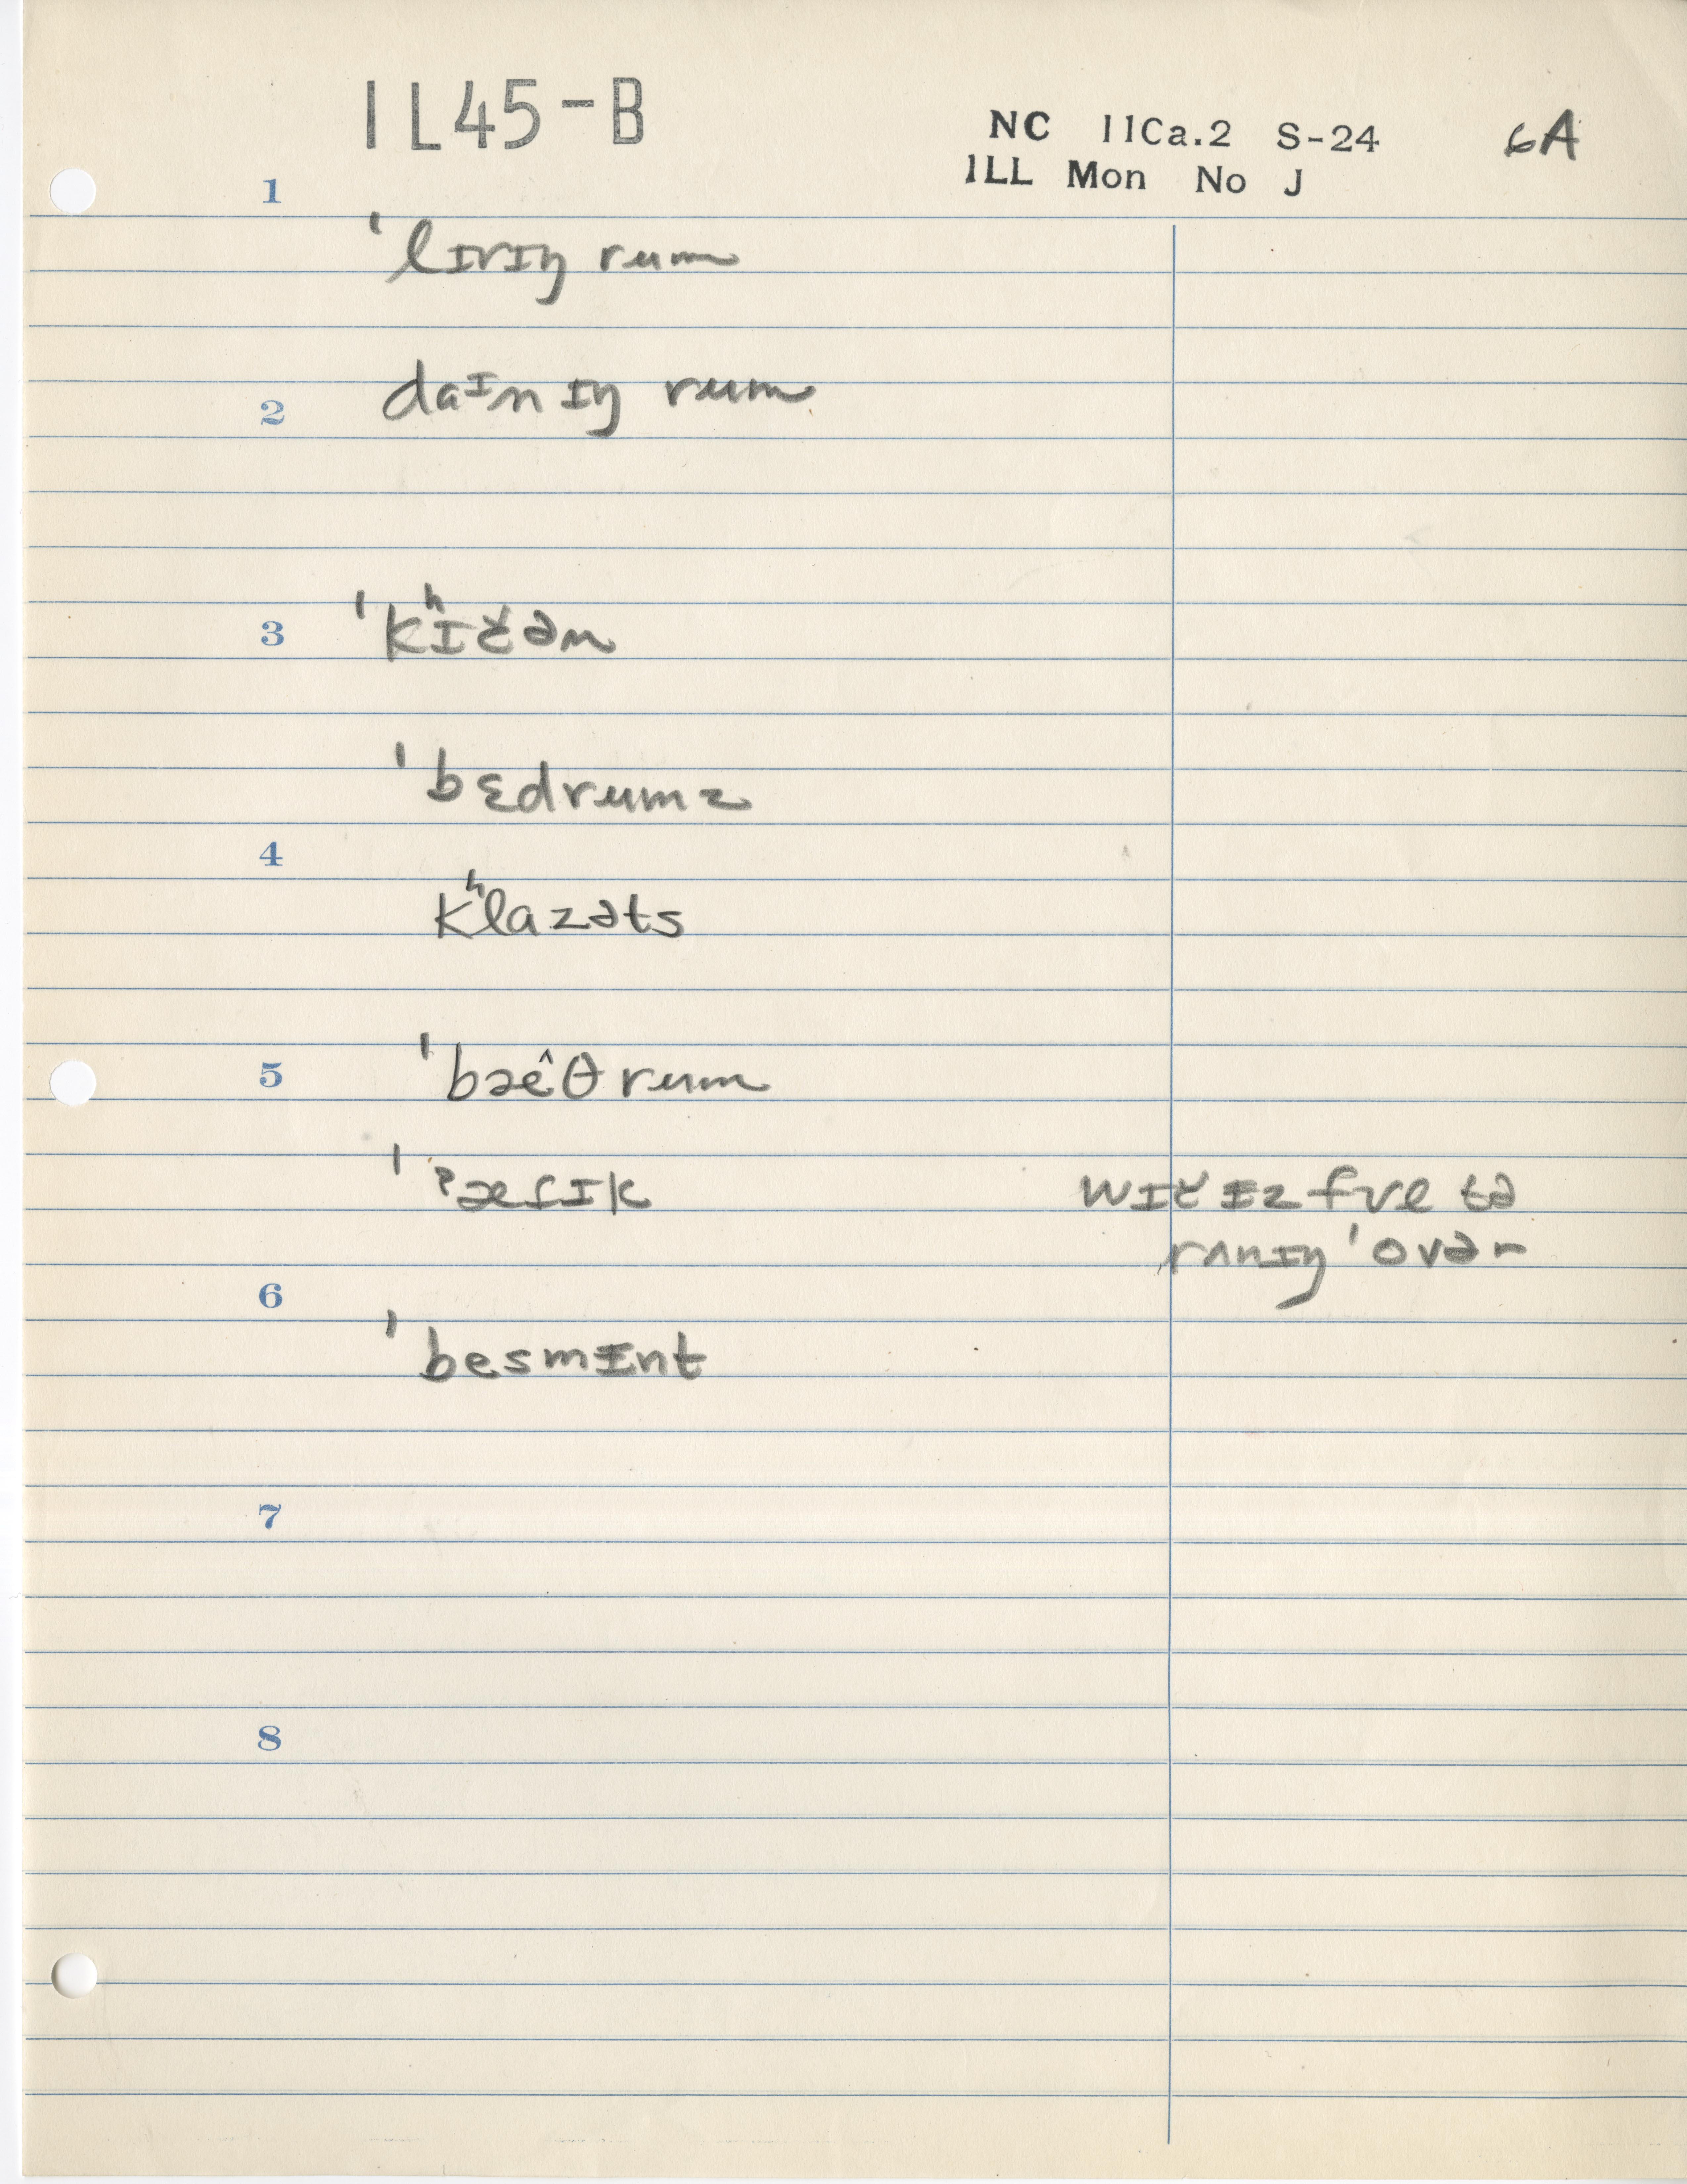 IL45-B
NC 11Ca.2 S-24 6A
ILL Mon No J
1
ˈlɪvɪŋ rum
2
daᶦnɪŋ rum
3
ˈkʰɪčən
ˈbɛdrumz
4
kʰlazəts
5
ˈbæ̂θrum
ˈʔæɾɪk
wɪčɨz fʊl tə
rʌnɪŋ ˈovər
6
ˈbesmɨnt
7
8